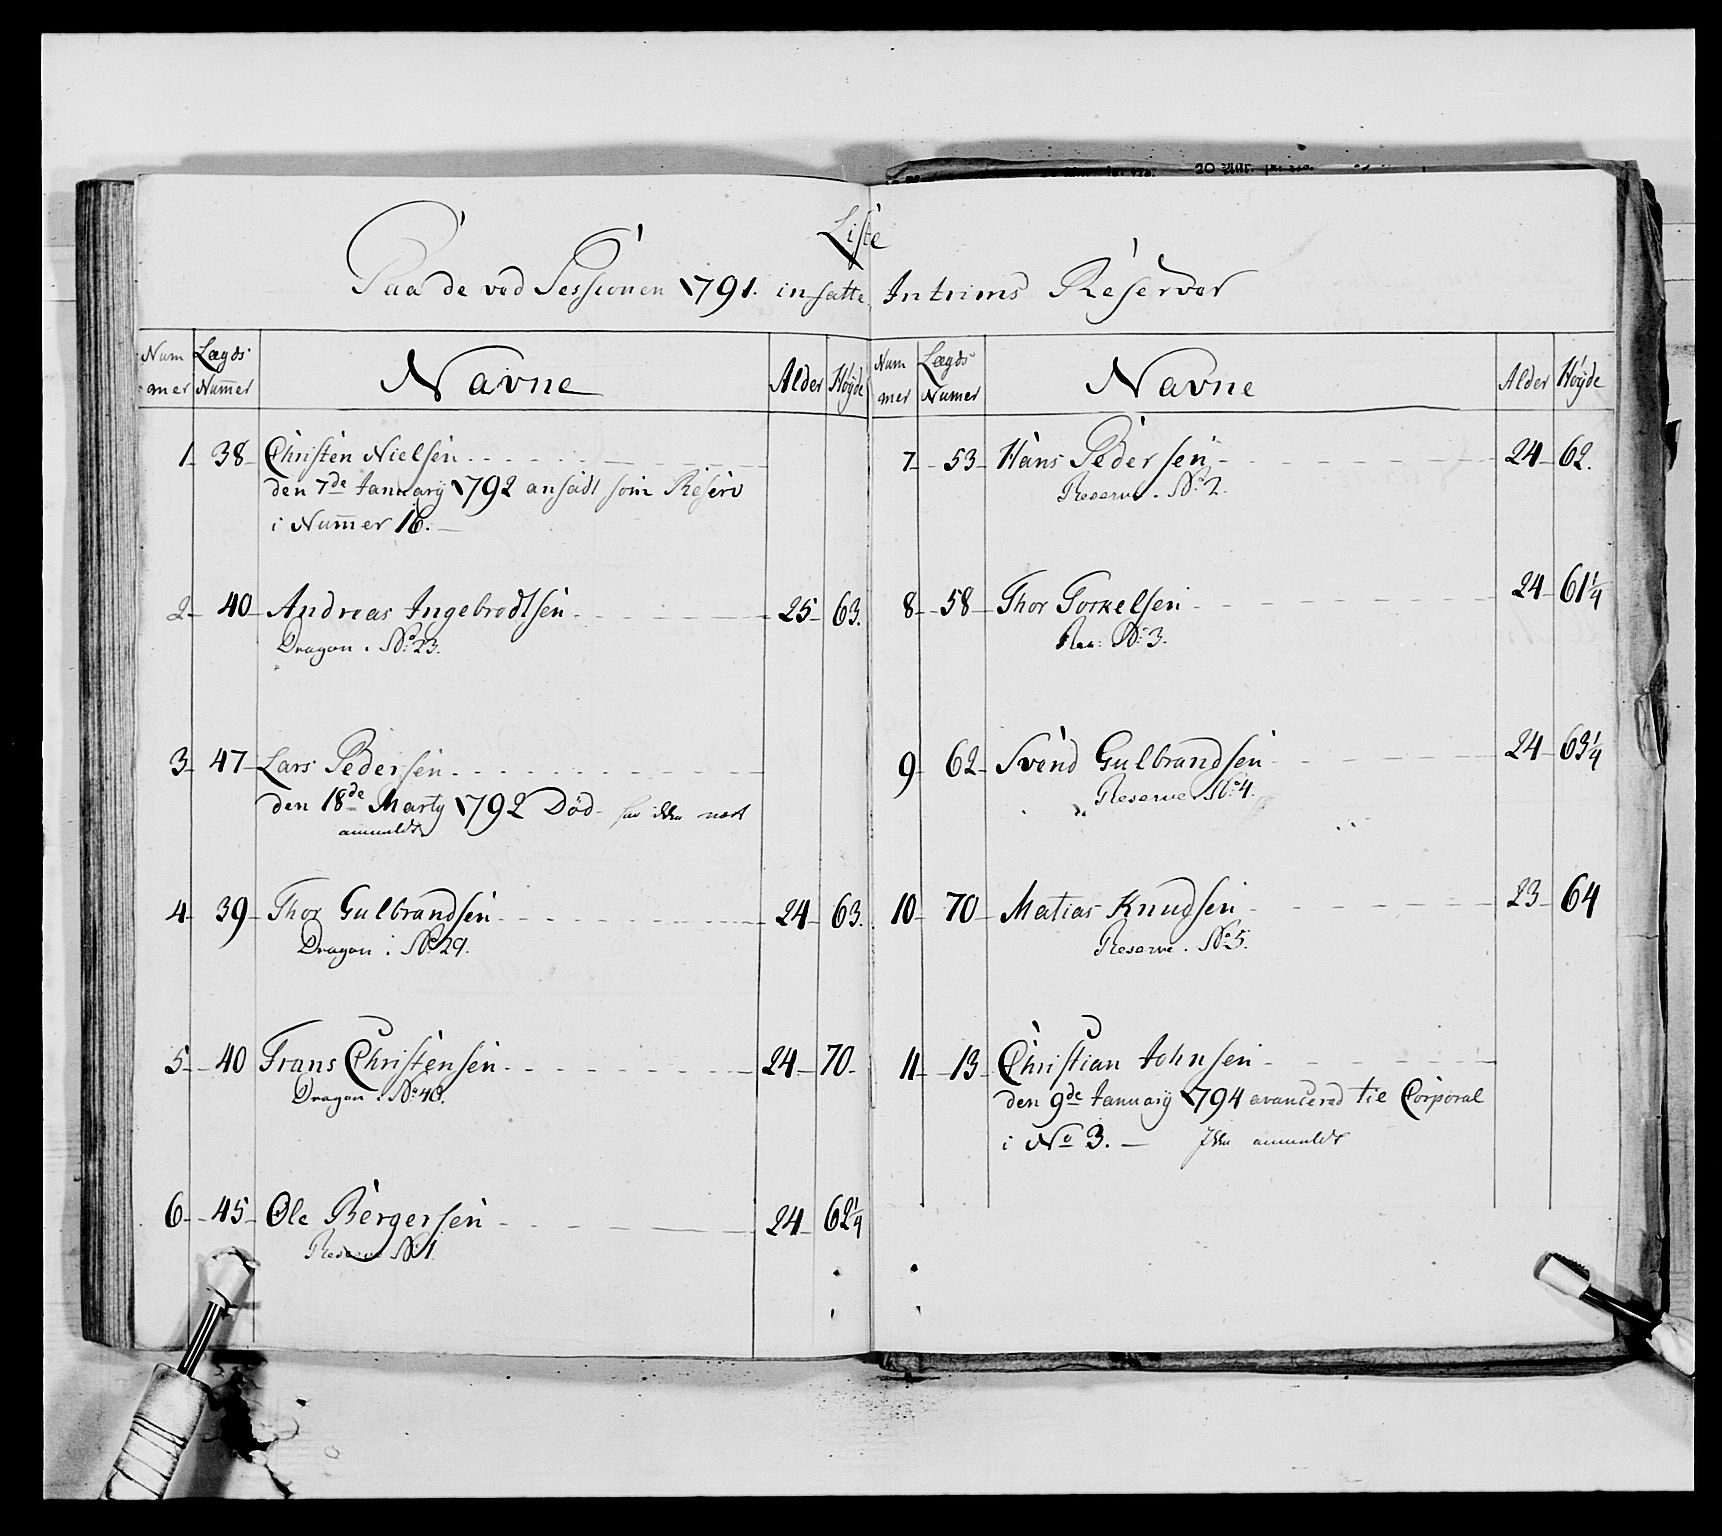 Liste
Paa de ved Sessionen 1791. insatte Intrims Reserver
Num Lægds
mer Num̄er Navne Alder Høyde
1 38 Christen Nielsen
den 7de Januarÿ 1792 ansadt som Reserv
i Num̄er 16.
2 40 Andreas Ingebrodtsen 25 63.
Dragon. No 23.
3 47 Lars Pedersen
den 18de Marty 1792 Død har ikke vært
anmeldt
4 39 Thor Gulbrandsen 24 63.
Dragon. No 29.
5 40 Frans Christensen 24 70
Dragon. No 40.
6 45 Ole Bergersen 24 62 1/4
Reserve No 1
Num Lægds
mer Numer Navne Alder Høyde
7 53 Hans Pedersen 24 62.
Reserve. No 2.
8 58 Thor Torkelsen 24 61 1/4
No 3.
9 62 Svend Gulbrandsen 24 63 1/4
Reserve No 4.
10 70 Matias Knudsen 23 64
Reserve. No 5.
11 13 Christian Johnsen
den 9de Januarÿ 1794 avancered til Corporal
i No 3. Ikke anmeldt